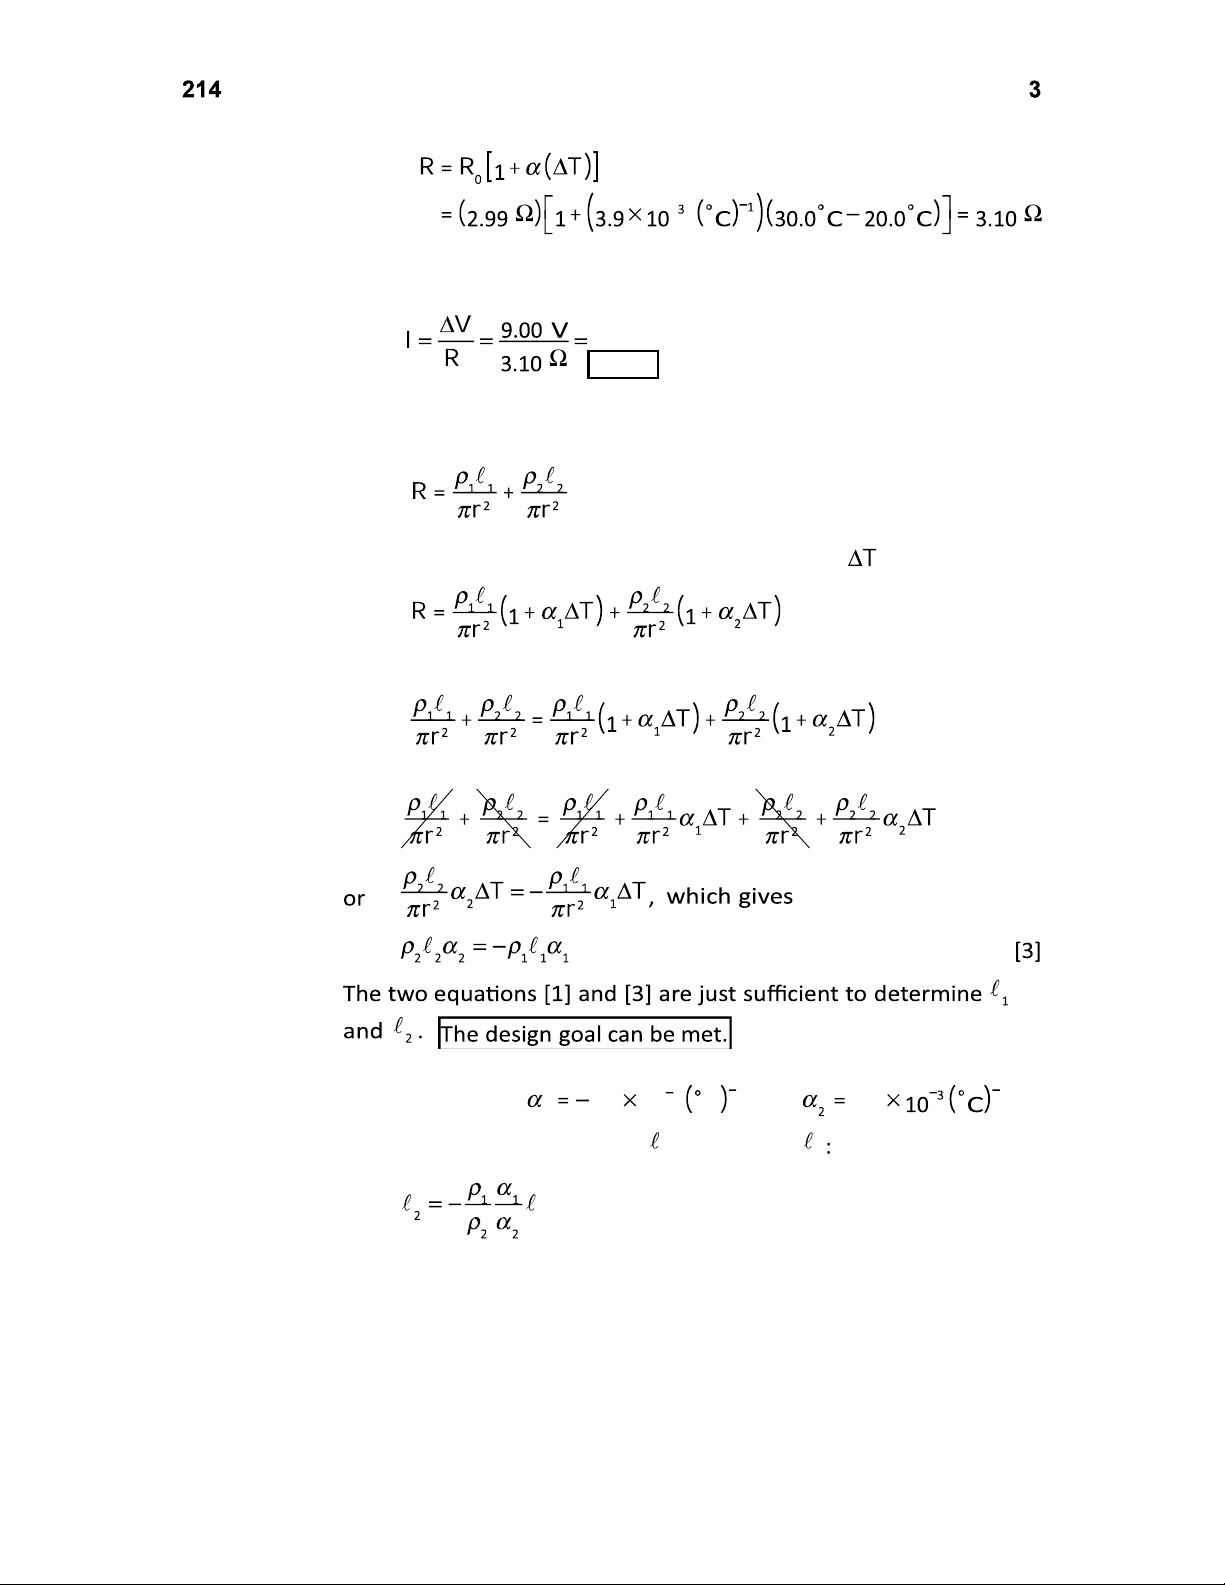 214 3
R = R₀[1 + α(ΔT)]
= (2.99 Ω)[1 + (3.9 × 10 ³ (°C)⁻¹)(30.0°C − 20.0°C)] = 3.10 Ω
I = ΔV/R = 9.00 V/3.10 Ω =
R = ρ₁ℓ₁/πr² + ρ₂ℓ₂/πr²
ΔT
R = ρ₁ℓ₁/πr² (1 + α₁ΔT) + ρ₂ℓ₂/πr² (1 + α₂ΔT)
ρ₁ℓ₁/πr² + ρ₂ℓ₂/πr² = ρ₁ℓ₁/πr² (1 + α₁ΔT) + ρ₂ℓ₂/πr² (1 + α₂ΔT)
ρ₁ℓ₁/πr² + ρ₂ℓ₂/πr² = ρ₁ℓ₁/πr² + ρ₁ℓ₁/πr² α₁ΔT + ρ₂ℓ₂/πr² + ρ₂ℓ₂/πr² α₂ΔT
or ρ₂ℓ₂/πr² α₂ΔT = −ρ₁ℓ₁/πr² α₁ΔT, which gives
ρ₂ℓ₂α₂ = −ρ₁ℓ₁α₁ [3]
The two equations [1] and [3] are just sufficient to determine ℓ₁
and ℓ₂. The design goal can be met.
α = − × ⁻ (° )⁻ α₂ = × 10⁻³ (°C)⁻
ℓ ℓ :
ℓ₂ = −ρ₁/ρ₂ α₁/α₂ ℓ